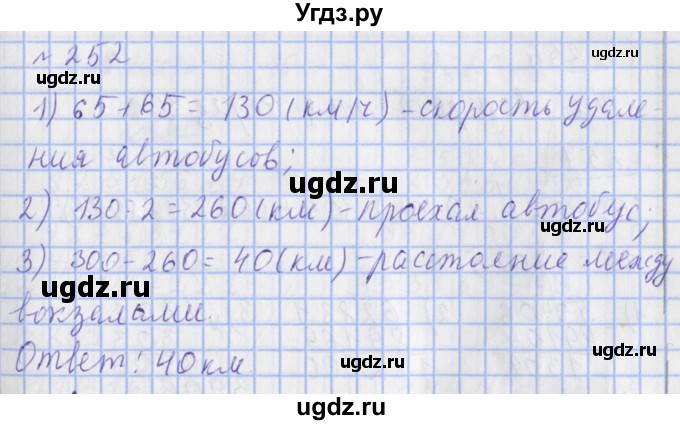 Угдз.ру
№ 252
ugdz.ru ugdz.ru
1) 65+65= 130 (км/ч) -скорость удале-
ния автобусов;
ugdz.ru
2) 130·2=260(км)-проехал автобус;
ugdz.ru
3) 300-260=40(км)-расстояние между
ugdz.ru
вокзалами.
ugdz.ru
Ответ: 40км.
ugdz.ru
ugdz.ru